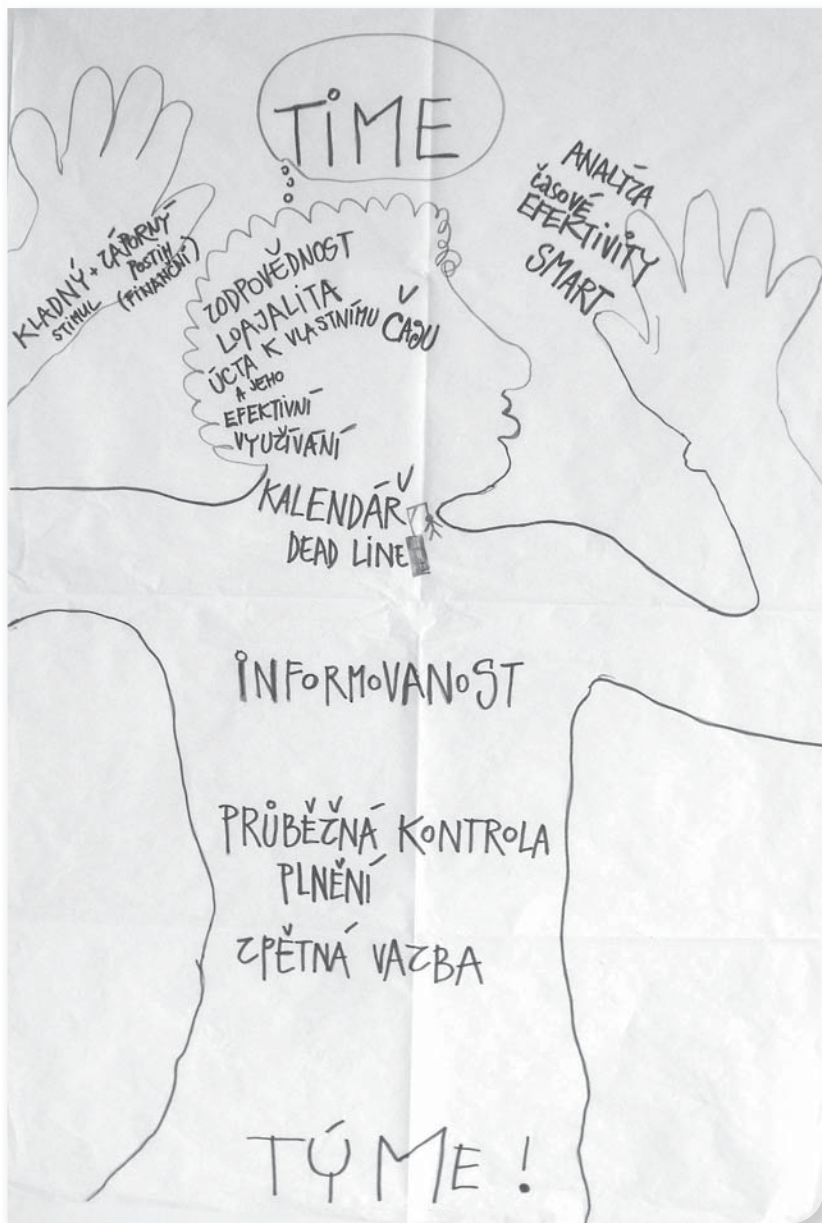 TiME
KLADNÝ + ZÁPORNÝ
STIMUL POSTIH
(FINANČNÍ)
ANALÝZA
časové
EFEKTIVITY
SMART
ZODPOVĚDNOST
LOAJALITA
ÚCTA K VLASTNÍMU ČASU
A JEHO
EFEKTIVNÍ
VYUŽÍVÁNÍ
KALENDÁŘ
DEAD LiNE
iNFORMOVANOST
PRŮBĚŽNÁ KONTROLA
PLNĚNÍ
ZPĚTNÁ VAZBA
TÝME!